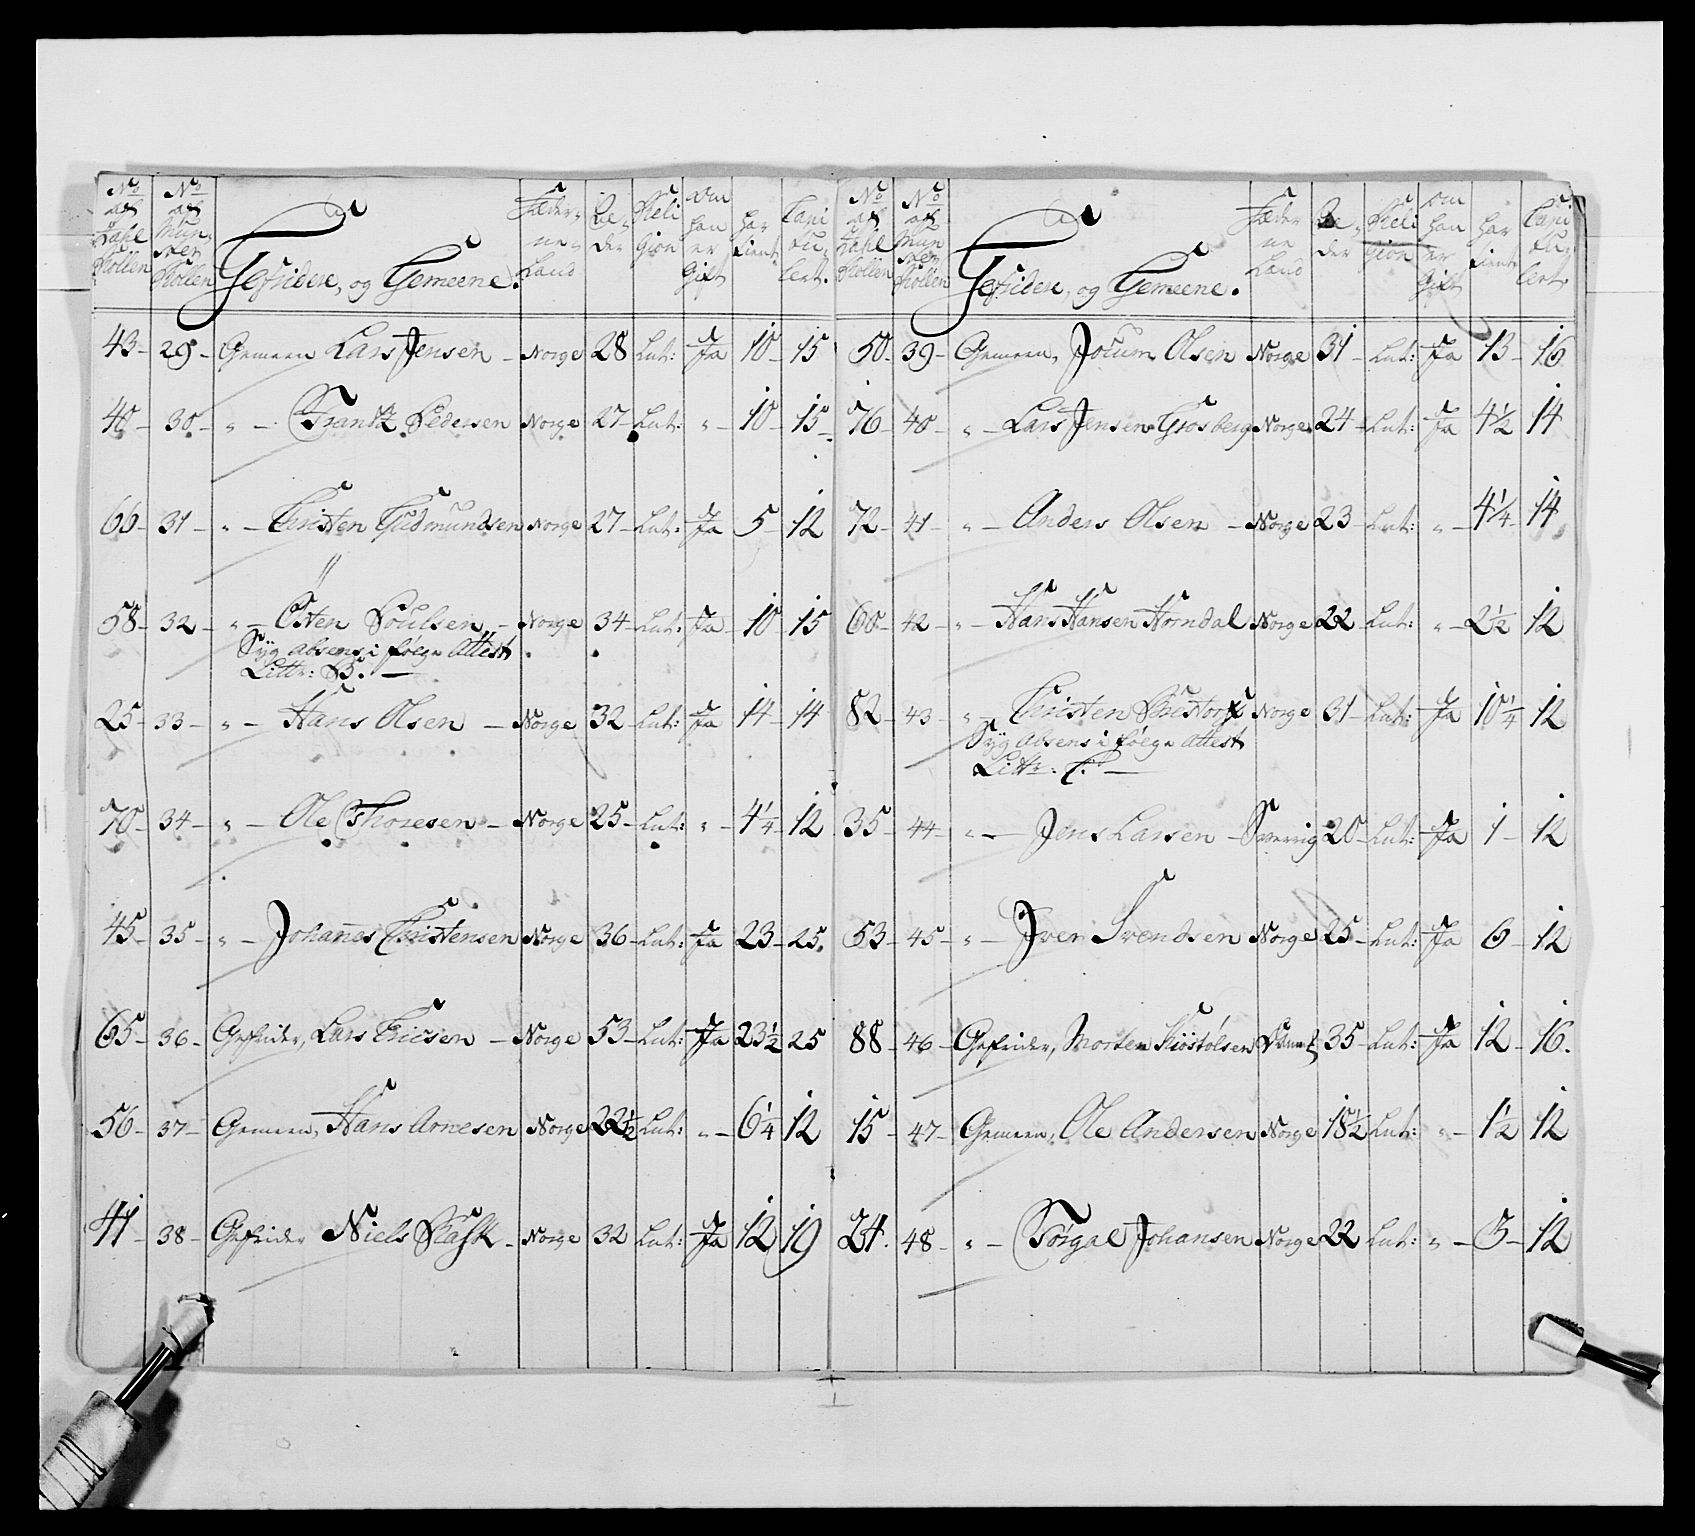 No af Zahl Rollen | No af Munster Rollen | Gefridere, og Gemeene. | Fæderne Land | Religion | Om han er Gift | har tient | Capitulert
43 - 29 - Gemeen Lars Jensen - Norge 28 Lut: Ja 10 - 15
40 - 30 - " - Frantz Pedersen Norge 27 - Lut: " - 10 - 15
66 - 31 - " - Christen Gudmundsen Norge 27 - Lut: Ja 5 - 12
58 - 32 - " - Östen Poulsen - Norge 34 - Lut: Ja 10 - 15
Syg absens i følge Attest
Littr: B.
25 - 33 - " - Hans Olsen - Norge 32 - Lut: Ja 14 - 14
70 - 34 - " - Ole Thoresen - Norge 25 - Lut: " - 4 1/4 - 12
45 - 35 - " - Johannes Christensen Norge 36 - Lut: Ja 23 - 25.
65 - 36 - Gefrider, Lars Ericsen - Norge 53 - Lut: Ja 23 1/2 25
56 - 37 - Gemeen, Hans Arnesen Norge 22 1/2 Lut: " - 6 1/4 12
41 - 38 - Gefrider Niels Flask - Norge 32 Lut: Ja 12 19
No af Zahl Rollen | No af Munster Rollen | Gefridere, og Gemeene. | Fæderne Land | Religion | Om han er Gift | har tient | Capitulert.
50 - 39 - Gemeen, Jocum Olsen Norge 31 - Lut: Ja 13 - 16
76 - 40 - " - Lars Jensen Grosberg Norge 24 - Lut: Ja 4 1/2 14
72 - 41 - " - Anders Olsen - Norge 23 - Lut: " - 4 1/4 - 14
60 - 42 - " - Hans Hansen Horndal Norge 22 - Lut: " - 2 1/2 12
82 - 43 - " Christen Norge 31 - Lut: Ja 10 1/4 12
Syg absens i følge Attest
Littr. C.
35 - 44 - " - Jens Larsen - Sverrig 20 - Lut: Ja 1 - 12
53 - 45 - " - Iver Svendsen Norge 25 - Lut: Ja 6 - 12
88 - 46 - Gefrider, Morten 35 - Lut: Ja 12 - 16.
15 - 47 - Gemeen, Ole Andersen Norge 18 1/2 Lut: " - 1 1/2 12
24. 48 - " - Törgal Johansen Norge 22 Lut: " - 3 - 12